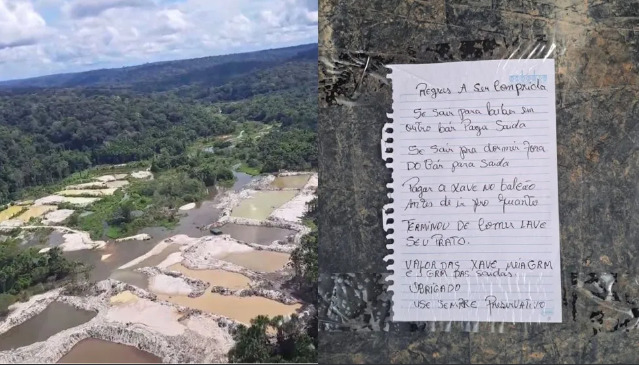 Regras A Ser Comprida
Se Sair para beber em
outro bar Paga Saida
Se Sair pra dormir fora
Do bar paga Saida
Pagar a Xave no balcão
Antes de ir pro Quarto
TERMINOU DE Comer LAVE
SEU PRATO.
VALOR DAS XAVE MEIA GRM
E 1 GRM DAS Saidas
OBRIGADO
USE SEMPRE PRESERVATIVO